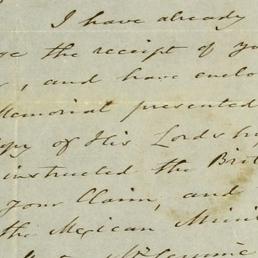 I have already
the receipt of yo
, and have enclo
Memorial presented
opy of His Lordship
instructed the Brit
your Claim, and
the Mexican Mini